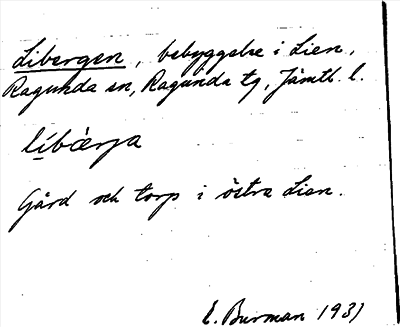 Libergen, bebyggelse i Lien,
Ragunda sn, Ragunda tg, Jämtl. l.
Gård och torp i östra Lien.
E. Burman 1931